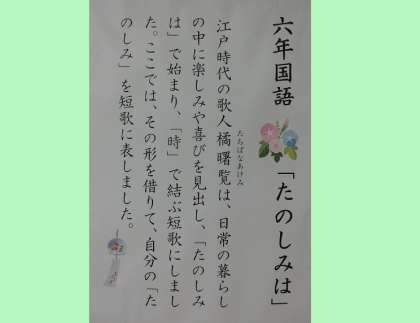 六年国語 「たのしみは」
江戸時代の歌人橘曙覧は、日常の暮らし
たちばなあけみ
の中に楽しみや喜びを見出し、「たのしみ
は」で始まり、「時」で結ぶ短歌にしまし
た。ここでは、その形を借りて、自分の「た
のしみ」を短歌に表しました。